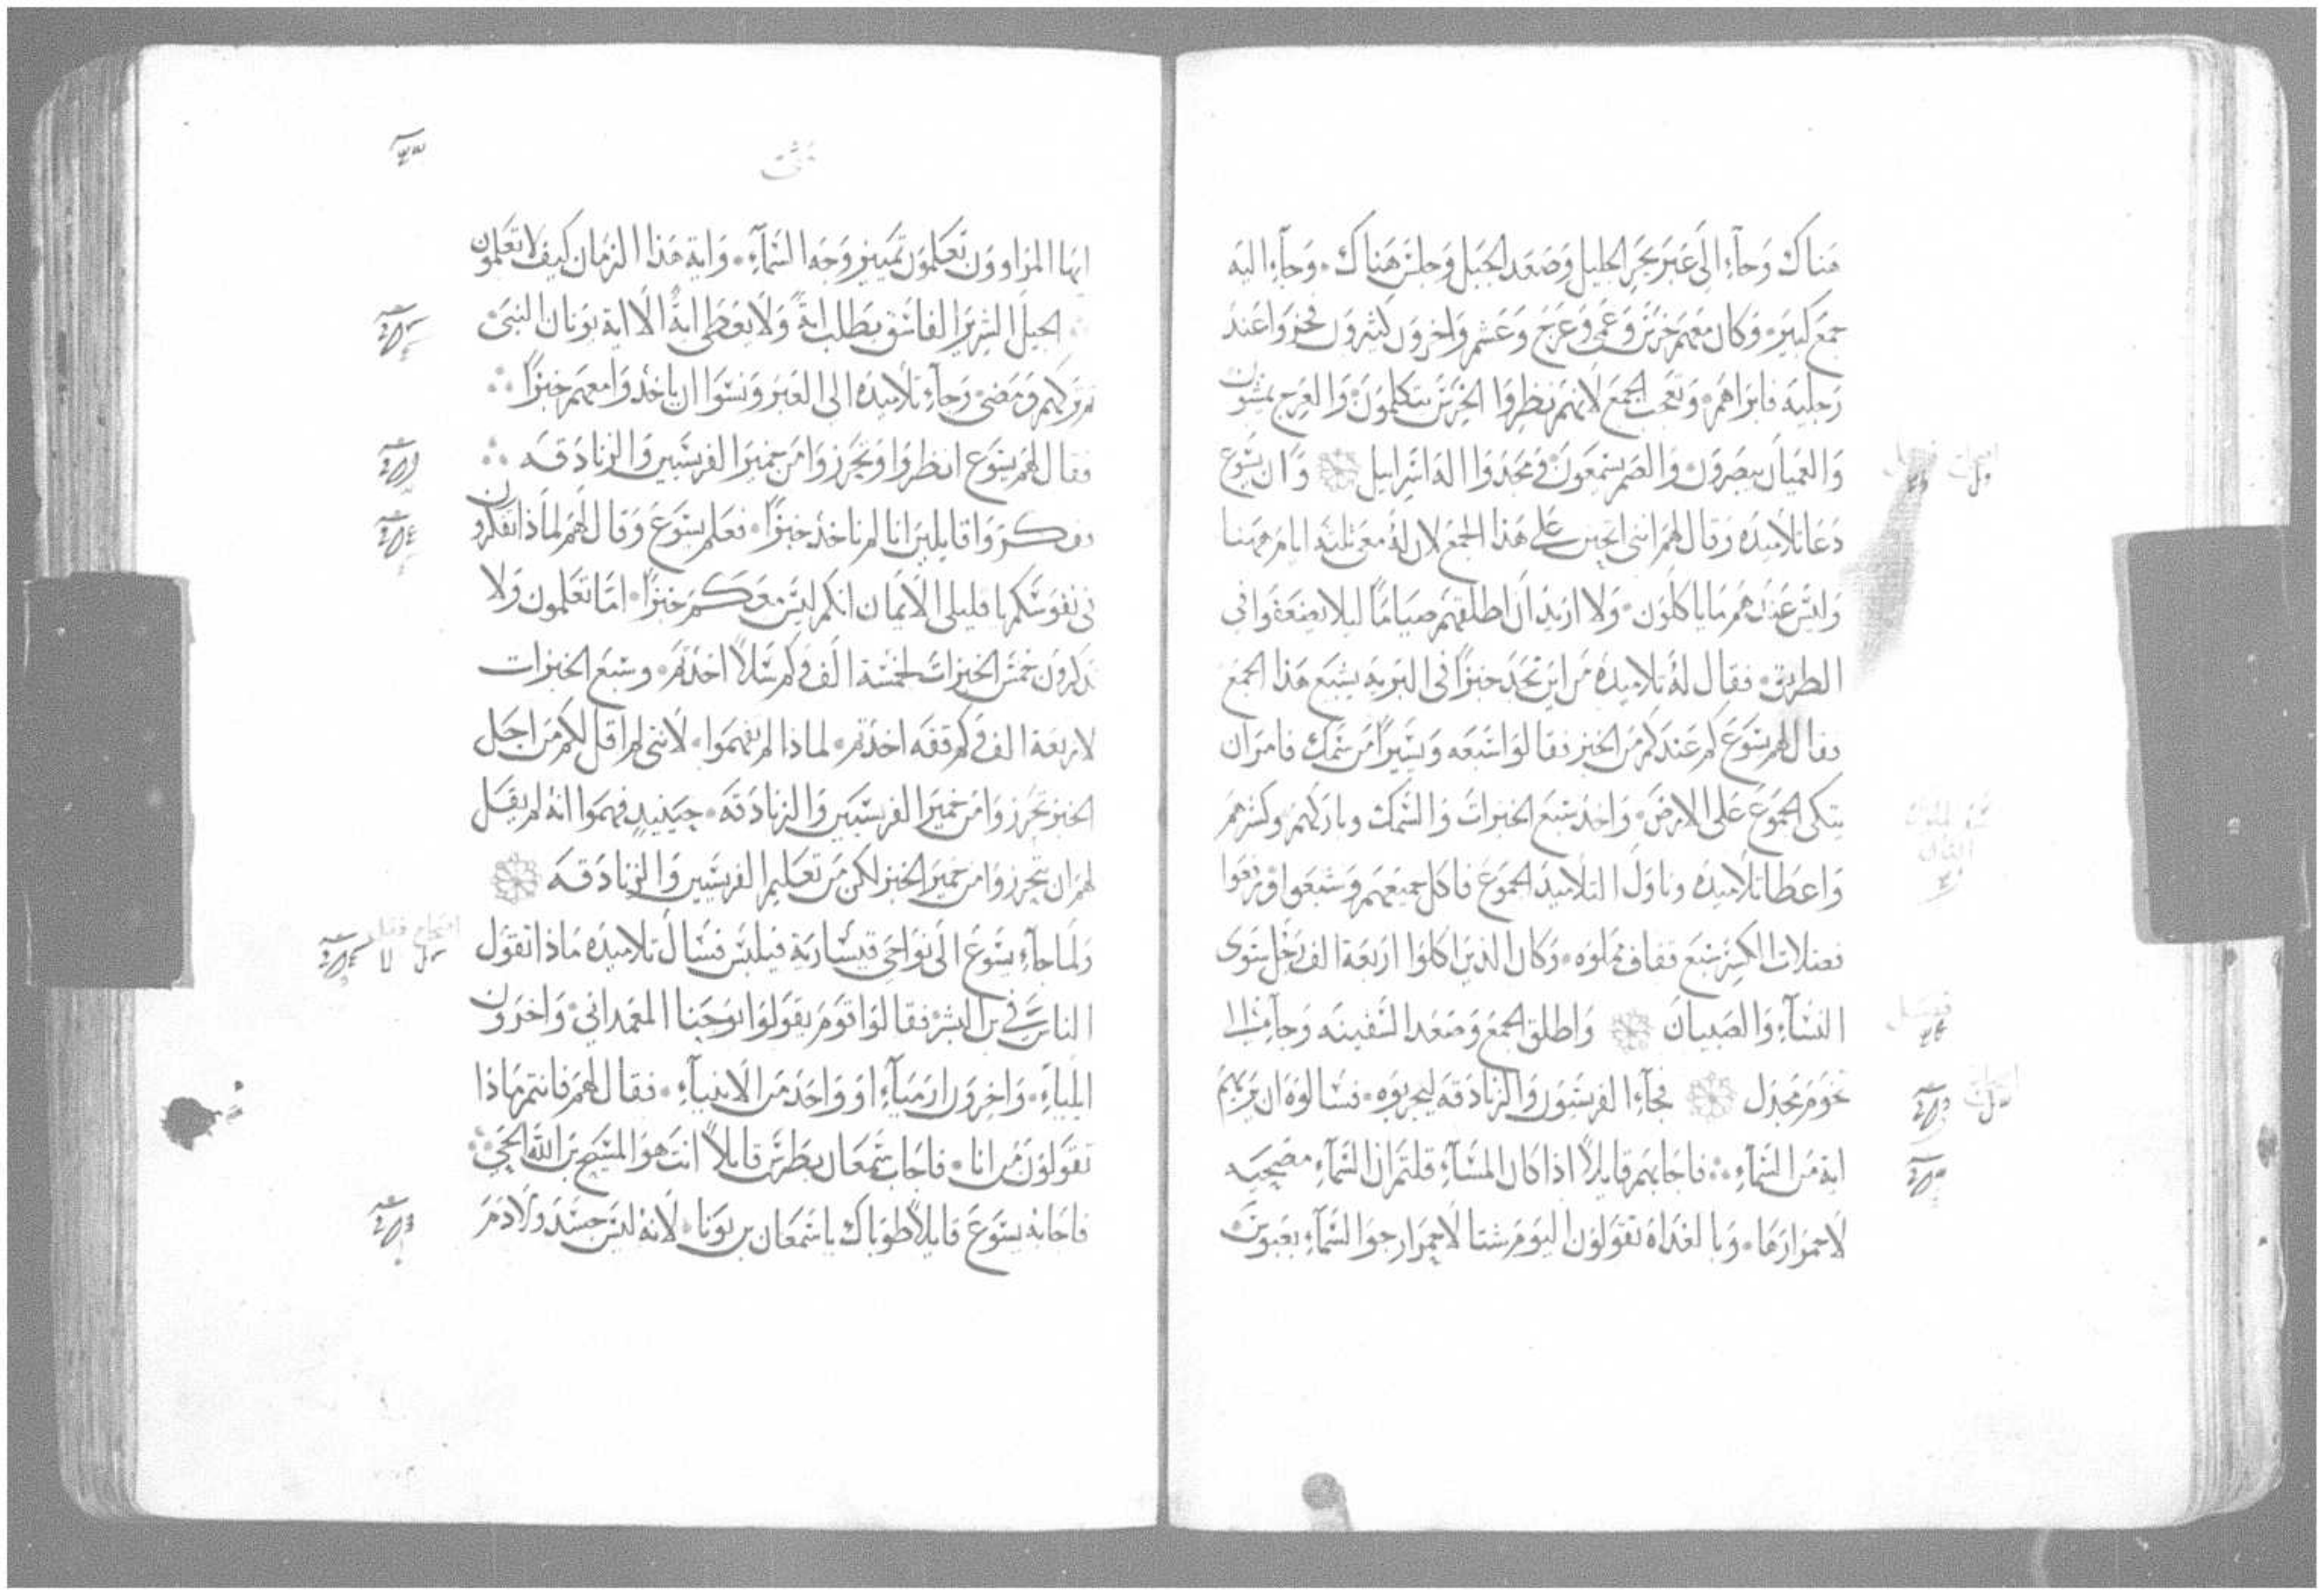 هناك وجاء الى عبر بحر الجليل وصعد الجبل وجلس هناك. وجاء اليه
جمع كبير. وكان معهم خرس وعمي وعرج وعشم واخرون كثيرون فخروا عند
رجليه فابراهم. وتعجب الجمع لانهم نظروا الخرس يتكلمون. والعرج يمشون
والعميان يبصرون. والصم يسمعون. ومجدوا اله اسراييل وان يسوع
دعا تلاميده وقال لهم انني اتحنن على هذا الجمع لان له معي ثلثه ايام ههنا
وليس عندهم ما ياكلون. ولا اريد ان اطلقهم صياما ليلا يضعفوا في
الطريق. فقال له تلاميده من اين نجد خبزا في البريه يشبع هذا الجمع
فقال لهم يسوع كم عندكم من الخبز فقالوا سبعه ويسيرا من سمك فامر ان
يتكى الجموع على الارض. واخد سبع الخبزات والسمك وباركهم وكسرهم
واعطا تلاميده وناول التلاميد الجموع فاكل جميعهم وشبعوا ورفعوا
فضلات الكسر سبع قفاف مملوه. وكان الذين اكلوا اربعة الف رجل سوى
النساء والصبيان واطلق الجمع وصعد السفينه وجا الى
تخوم مجدل فجاء الفريسيون والزنادقه ليجربوه. فسالوه ان يريهم
اية من السماء. فاجابهم قايلا اذا كان المساء قلتم ان السماء مصحيه
لاحمرارها. وبالغداه تقولون اليوم شتا لاحمرار جو السماء بعبوس
متى
ايها المراوون تعلمون تمييز وجه السماء. واية هذا الزمان كيف لا تعلمون
الجيل الشرير الفاسق يطلب اية ولا يعطى اية الا اية يونان النبي
ثم تركهم ومضى وجاء تلاميده الى العبر ونسوا ان ياخدوا معهم خبزا
فقال لهم يسوع انظروا وتحرزوا من خمير الفريسيين والزنادقه
وفكروا قايلين انا لم ناخد خبزا. فعلم يسوع وقال لهم لماذا تفكرون
في نفوسكم يا قليلي الايمان انكم ليس معكم خبزا. اما تعلمون ولا
تدكرون خمس الخبزات لخمسة الف وكم سلا اخذتم. وسبع الخبزات
لاربعة الف وكم قفه اخذتم. لماذا لم تفهموا. لانني لم اقل لكم من اجل
الخبز تحرزوا من خمير الفريسيين والزنادقه. حينيد فهموا انه لم يقل
لهم ان يتحرزوا من خمير الخبز لكن من تعاليم الفريسيين والزنادقه
ولما جاء يسوع الى نواحي قيسارية فيلبس فسال تلاميده ماذا تقول
الناس في بن البشر فقالوا قوم يقولوا يوحنا المعمداني. واخرون
ايلياء. واخرون ارمياء او واحد من الانبياء. فقال لهم فانتم ماذا
تقولون من انا. فاجاب سمعان بطرس قايلا انت هو المسيح بن الله الحي
فاجابه يسوع قايلا طوباك يا سمعان بن يونا. لانه ليس جسد ولا دم